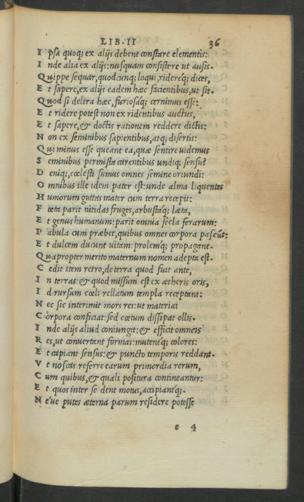 LIB. II 36
I psa quoq; ex alijs debent constare elementis:
I nde alia ex alijs: nusquam consistere ut ausis.
Q uippe sequar, quodcunq; loqui, ridereq; dices,
E t sapere, ex alijs eadem hæc facientibus, ut sit.
Q uod si delira hæc, furiosaq; cernimus esse:
E t ridere potest non ex ridentibus auctus,
E t sapere, & doctis rationem reddere dictis:
N on ex seminibus sapientibus, atq; disertis:
Q ui minus esse queant ea, quæ sentire uidemus
S eminibus permista carentibus undiq; sensu?
D eniq; cœlesti sumus omnes semine oriundi:
O mnibus ille idem pater est: unde alma liquentes
H umorum guttas mater cum terra recepit:
F eta parit nitidas fruges, arbustaq; læta,
E t genus humanum: parit omnia secla ferarum:
P abula cum præbet, quibus omnes corpora pascũt:
E t dulcem ducunt uitam: prolemq; propagant.
Q uapropter merito maternum nomen adepta est.
C edit item retro, de terra quod fuit ante,
I n terras: & quod missum est ex ætheris oris,
I d rursum cœli rellatum templa receptant:
N ec sic interimit mors res: ut materiai
C orpora conficiat: sed cœtum dissipat ollis.
I nde alijs aliud coniungit: & efficit omneis
R es, ut conuertant formas: mutentq; colores:
E t capiant sensus: & puncto temporis reddant.
V t noscas referre earum primordia rerum,
C um quibus, & quali positura contineantur:
E t quos inter se dent motus, accipiantq;.
N eue putes æterna parum residere potesse
e 4